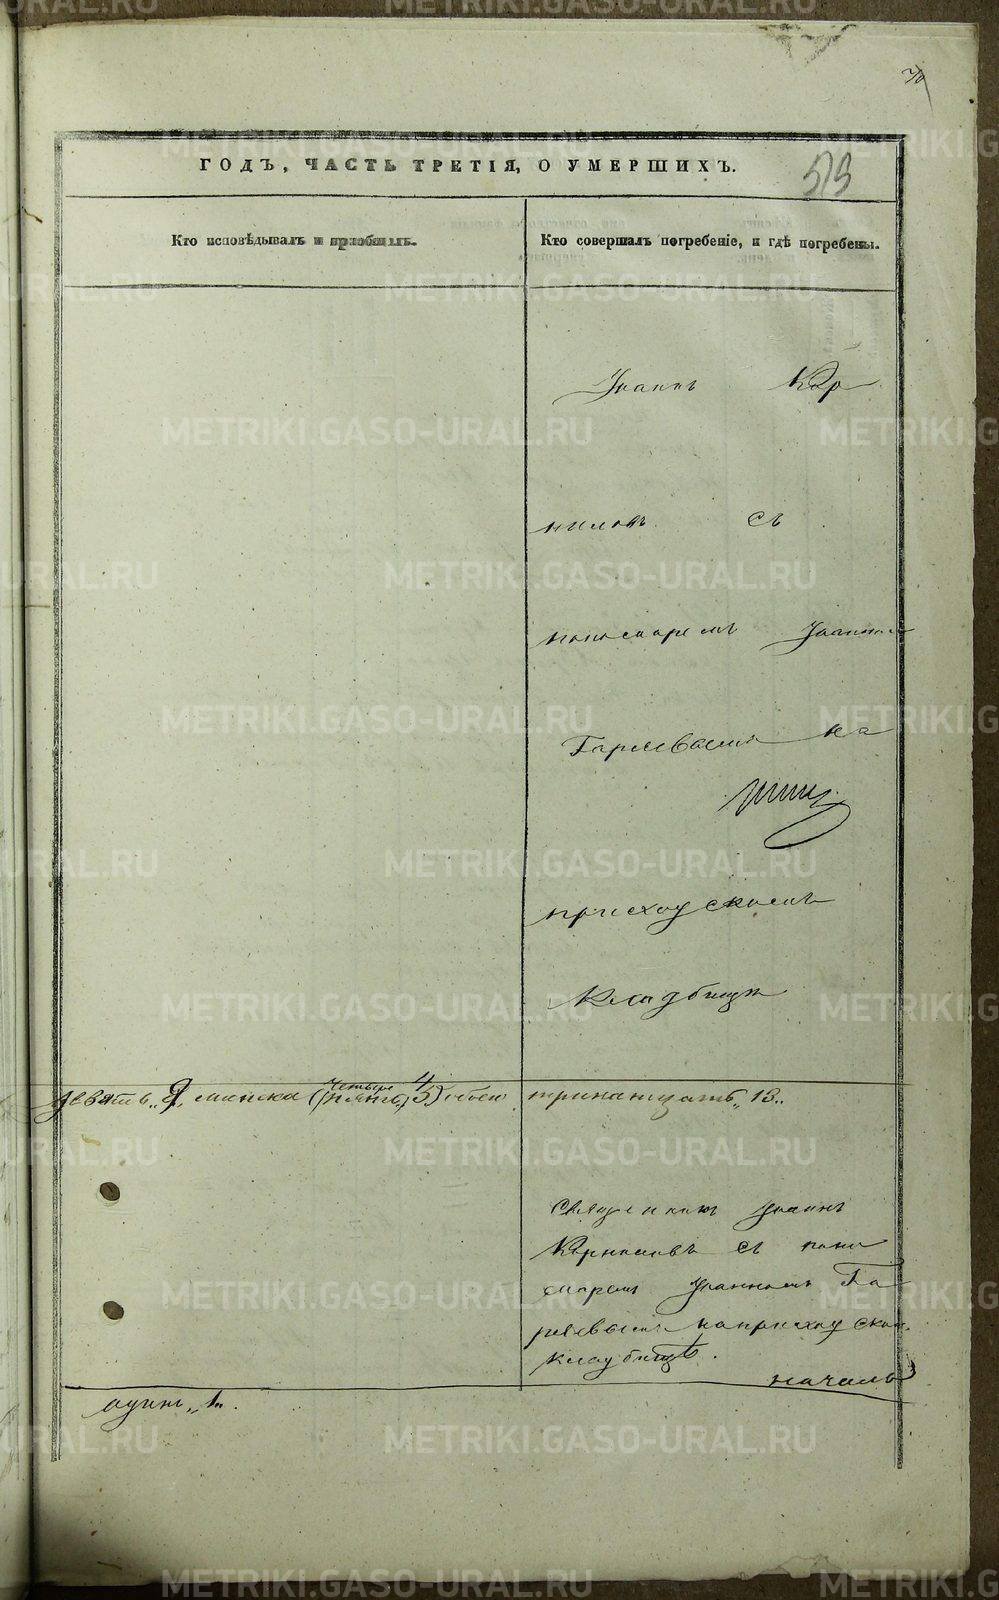 ГОДЪ, ЧАСТЬ ТРЕТІЯ, О УМЕРШИХЪ.
513
Кто исповѣдывалъ и пріобщалъ.
Кто совершалъ погребеніе, и гдѣ погребены.
Іоаннъ Кор
ниловъ съ
пономаремъ Іоанном
Гаряевымъ на
приходскомъ
кладбищѣ
девять „9„ женска (четыре 4 пять „5) обоего тринатцать „13„
Священникъ Іоаннъ
Корниловъ съ поно
маремъ Іоанномъ Га
ряевымъ на приходском
кладбищѣ.
одинъ „1„.
METRIKI.GASO-URAL.RU